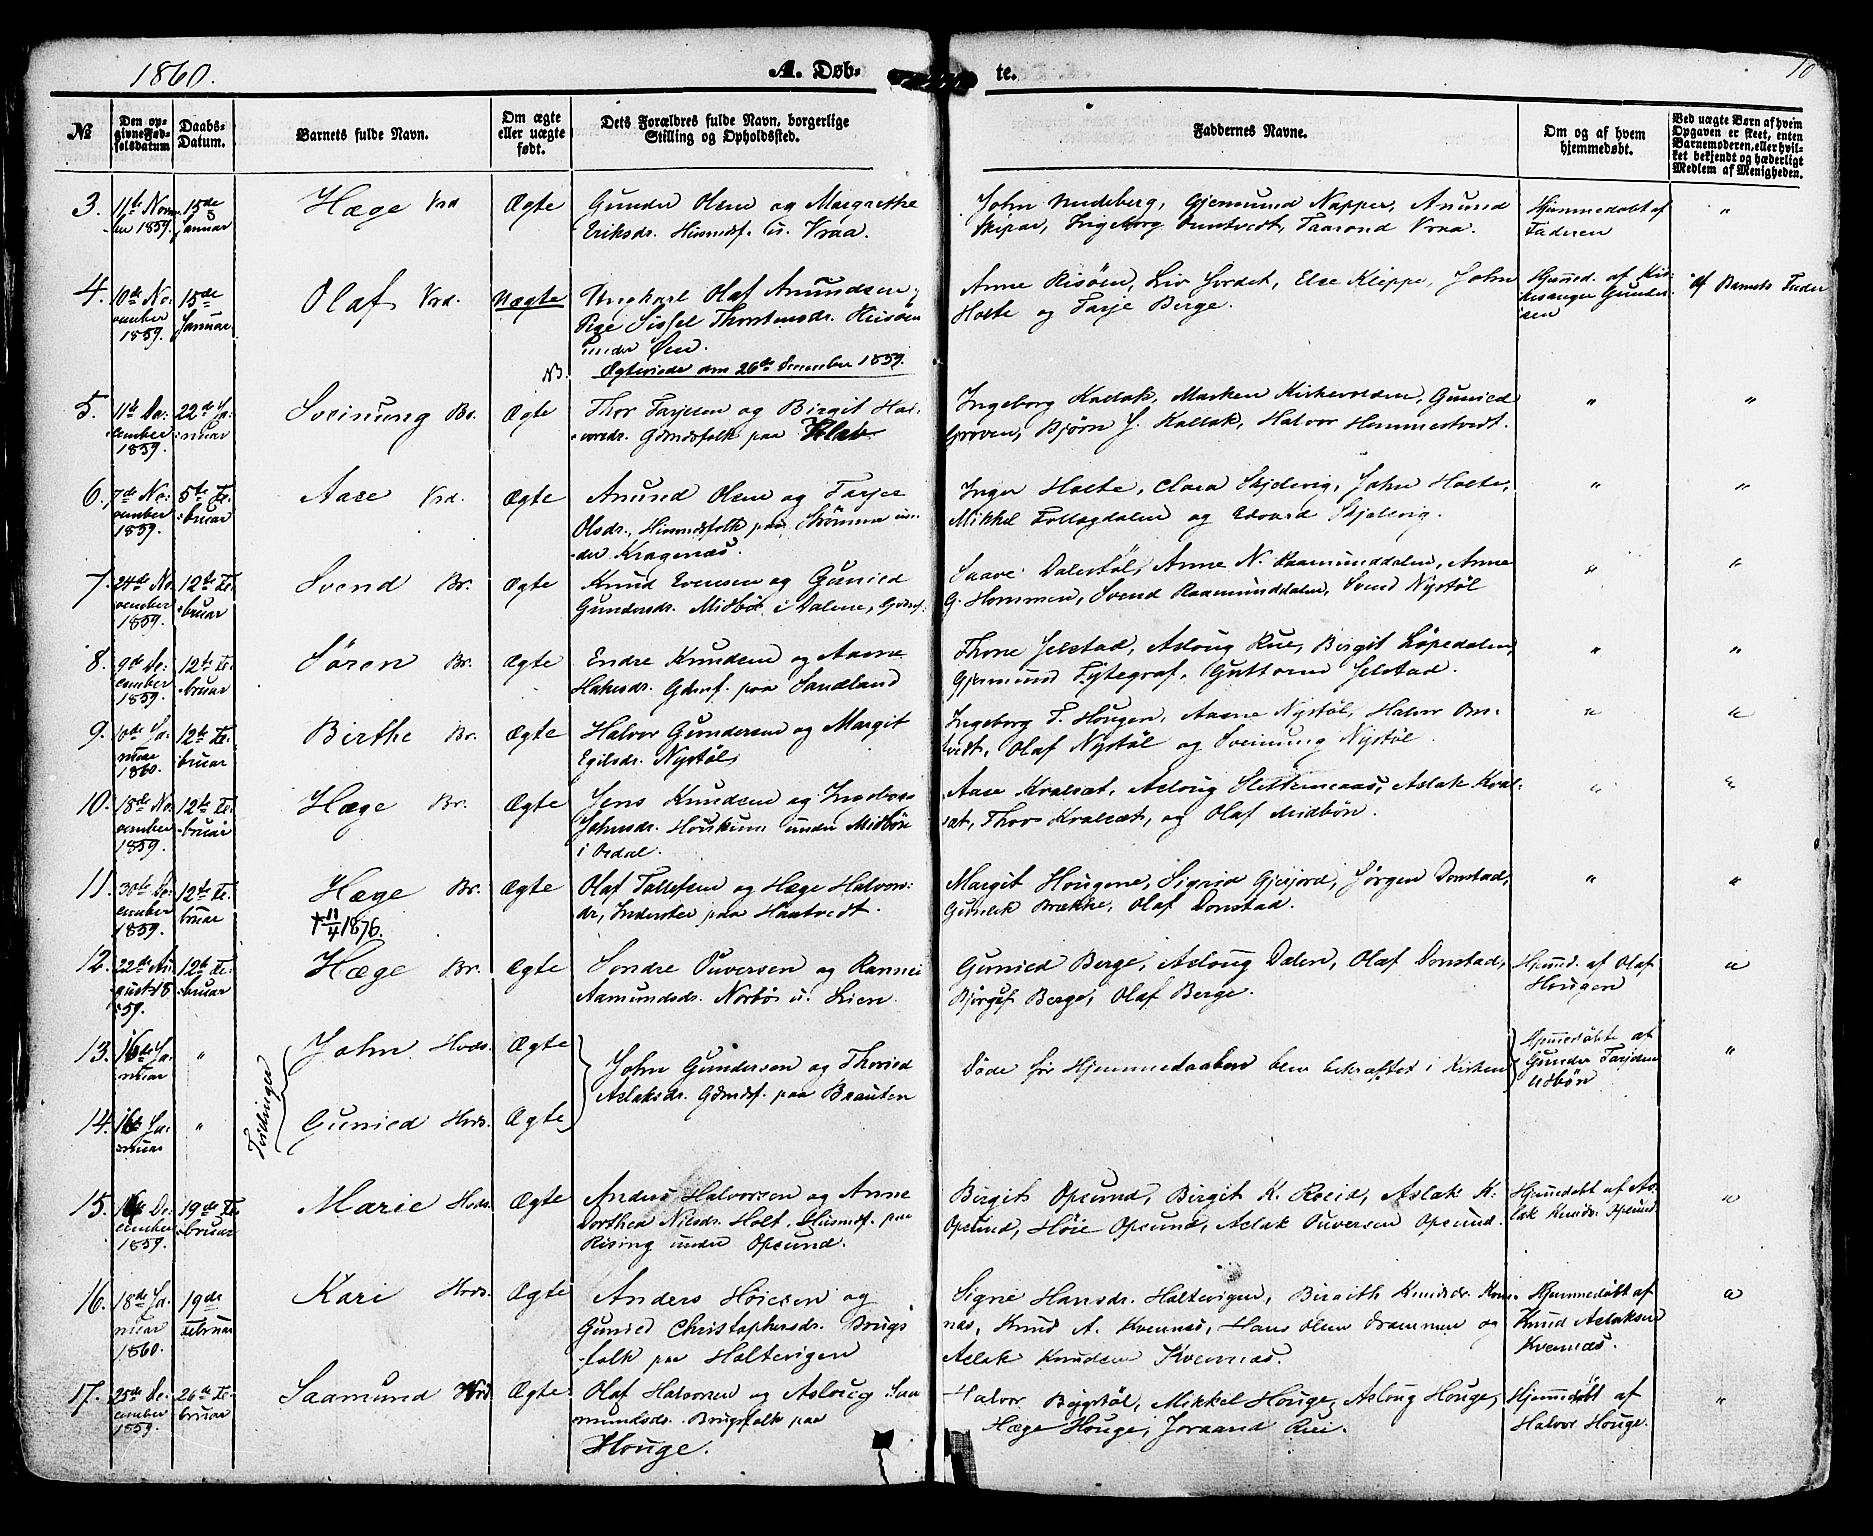 1860.
A. Døb-
te.
10
№
Den op-
givne Fød-
selsdatum
Daabs-
Datum.
Barnets fulde Navn.
Om ægte
eller uægte
født.
Dets Forældres fulde Navn, borgerlige
Stilling og Opholdssted.
Faddernes Navne.
Om og af hvem
hjemmedøbt.
Ved uægte Børn af hvem
Opgaven er skeet, enten
Barnemoderen, eller hvil-
ket bekjendt og hæderligt
Medlem af Menigheden.
3.
11te Novem-
ber 1859.
15de
Januar
Hæge Vrd
Ægte
Gunder Olsen og Margrethe
Eriksdr. Huusmdsf. u. Vraa
John Gjermund Napper, Anund
Skipar, Ingeborg Taarand Vraa.
Hjemmedøbt af
Faderen
"
4.
10de No-
vember
1859.
15de
Januar
Olaf Vrd.
Uægte
Ungkarl Olaf Anundsen,
Pige Sissel Thorstensdr.
under Øen.
NB. Ægteviede den 26de December 1859.
Anne Risöen, Liv Jordet, Else Kleppe, John
Holte og Tarje Berge.
Hjemmed. af Kir-
kesanger Gunder-
sen
af Barnets Fader
5.
11te De-
cember
1859.
22de Ja-
nuar
Sveinung Br.
Ægte
Thor Tarjesen og Birgit Hal-
vorsdr. Gdmdsfolk paa
Ingeborg Kaslak, Marken Kirkevolden, Gunild
Groven, Bjørn J. Kallak, Halvor Hemmestvedt.
"
"
6.
7de No-
vember
1859.
5te Fe-
bruar
Aase Vrd.
Ægte
Anund Olsen og Tarjer
Olsdr. Huusmdsfolk paa Strömmen un-
der Kragenæs.
Inger Holte, Clara Skjelvig, John Holte,
Mikkel Follagdalen og Edvard Skjelvig.
"
"
7.
24de No-
vember
1859.
12te Fe-
bruar
Svend Br.
Ægte
Knud Evensen og Gunild
Gundersdr. Midbø i Dalene, Gdmdsf.
Saave Dalestöl, Anne N. Raamunddalen, Anne
G. Hommen, Svend Raamunddalen, Svend Nystöl
"
"
8.
9de De-
cember
1859.
12te Fe-
bruar
Sören Br.
Ægte
Endre Knudsen og Aasne
Gdmdsf. paa Sandland
Thone Jelstad, Aslaug Rue, Birgit Löpedalen,
Gjermund Fytegraf, Guttorm Jelstad.
"
"
9.
10de Ja-
nuar
1860.
12te Fe-
bruar
Birthe Br.
Ægte
Halvor Gundersen og Margit
Egilsdr. Nystöl
Ingeborg T. Hougen, Aasne Nystöl, Halvor Bu-
tvedt, Olaf Nystöl og Sveinung Nystöl.
"
"
10.
18de No-
vember
1859.
12te Fe-
bruar
Hæge Br.
Ægte
Jens Knudsen og Ingebor
Johnsdr. Houskum under Midböe
i Ordal.
Aase Kvalsæt, Aslaug Slettemeaas, Aslak Kval-
sæt, Thor Kvalsæt, og Olaf Midbön.
"
"
11.
30te De-
cember
1859.
12te Fe-
bruar
Hæge Br.
† 11/4 1876.
Ægte
Olaf Tollefsen og Hæge Halvors-
dr, Inderster paa Haatvedt.
Margit Hougene, Sigrid Gjesjord, Jørgen Donstad,
Gunlek Brække, Olaf Donstad.
"
"
12.
22de Au-
gust 18
59.
12te Fe-
bruar
Hæge Br.
Ægte
Sondre Ouversen og Rannei
Aamundsdr. Norbö u. Lien.
Gunild Berge, Aslaug Dalen, Olaf Donstad,
Bjørgulf Berge, Olaf Berge.
Hjemmd. af Olaf
Hougen
"
13.
16de Ja-
nuar
"
Tvillinger
John Hvds.
Ægte
John Gundersen og Thorild
Aslaksdr. Gdmdsf. paa Brauten
Døde før Hjemmedaaben blev bekræftet i Kirken
Hjemmedøbte af
Gunder Tarjesen
Udbön
"
14.
16de Ja-
nuar
"
Gunild Hvds.
Ægte
15.
16de De-
cember
1859.
19de Fe-
bruar
Marie Hvds.
Ægte
Anders Halvorsen og Anne
Dorthea Nilsdr. Holt, Huusmdsf. paa
Rising under Opsund.
Birgit Opsund, Birgit K. Roeid, Aslak K.
Opsund, Høie Opsund, Aslak Ouversen Opsund.
Hjemmedøbt af As-
lak Knuds. Opsund.
"
16.
18de Ja-
nuar
1860.
19de
Februar
Kari Hvds.
Ægte
Anders Höiesen og
Gunild Christophersdr. Brugs
folk paa Holtevigen
Signe Hansdr. Holtevigen, Birgith Knudsdr. Kver-
næs, Knud A. Kvernæs, Hans Olsen Drammen og
Aslak Knudsen Kvernæs.
Hjemmedøbt af
Knud Aslaksen
Kvernæs.
"
17.
25de De-
cember
1859.
26de Fe-
bruar
Saamund Hvd
Ægte
Olaf Halvorsen og Aslaug Saa-
mundsdr. Brugsfolk paa
Houge.
Halvor Bygstöl, Mikkel Houge, Aslaug Houge,
Hæge Houge, Joraand Rui.
Hjemmedøbt af
Halvor Houge.
"